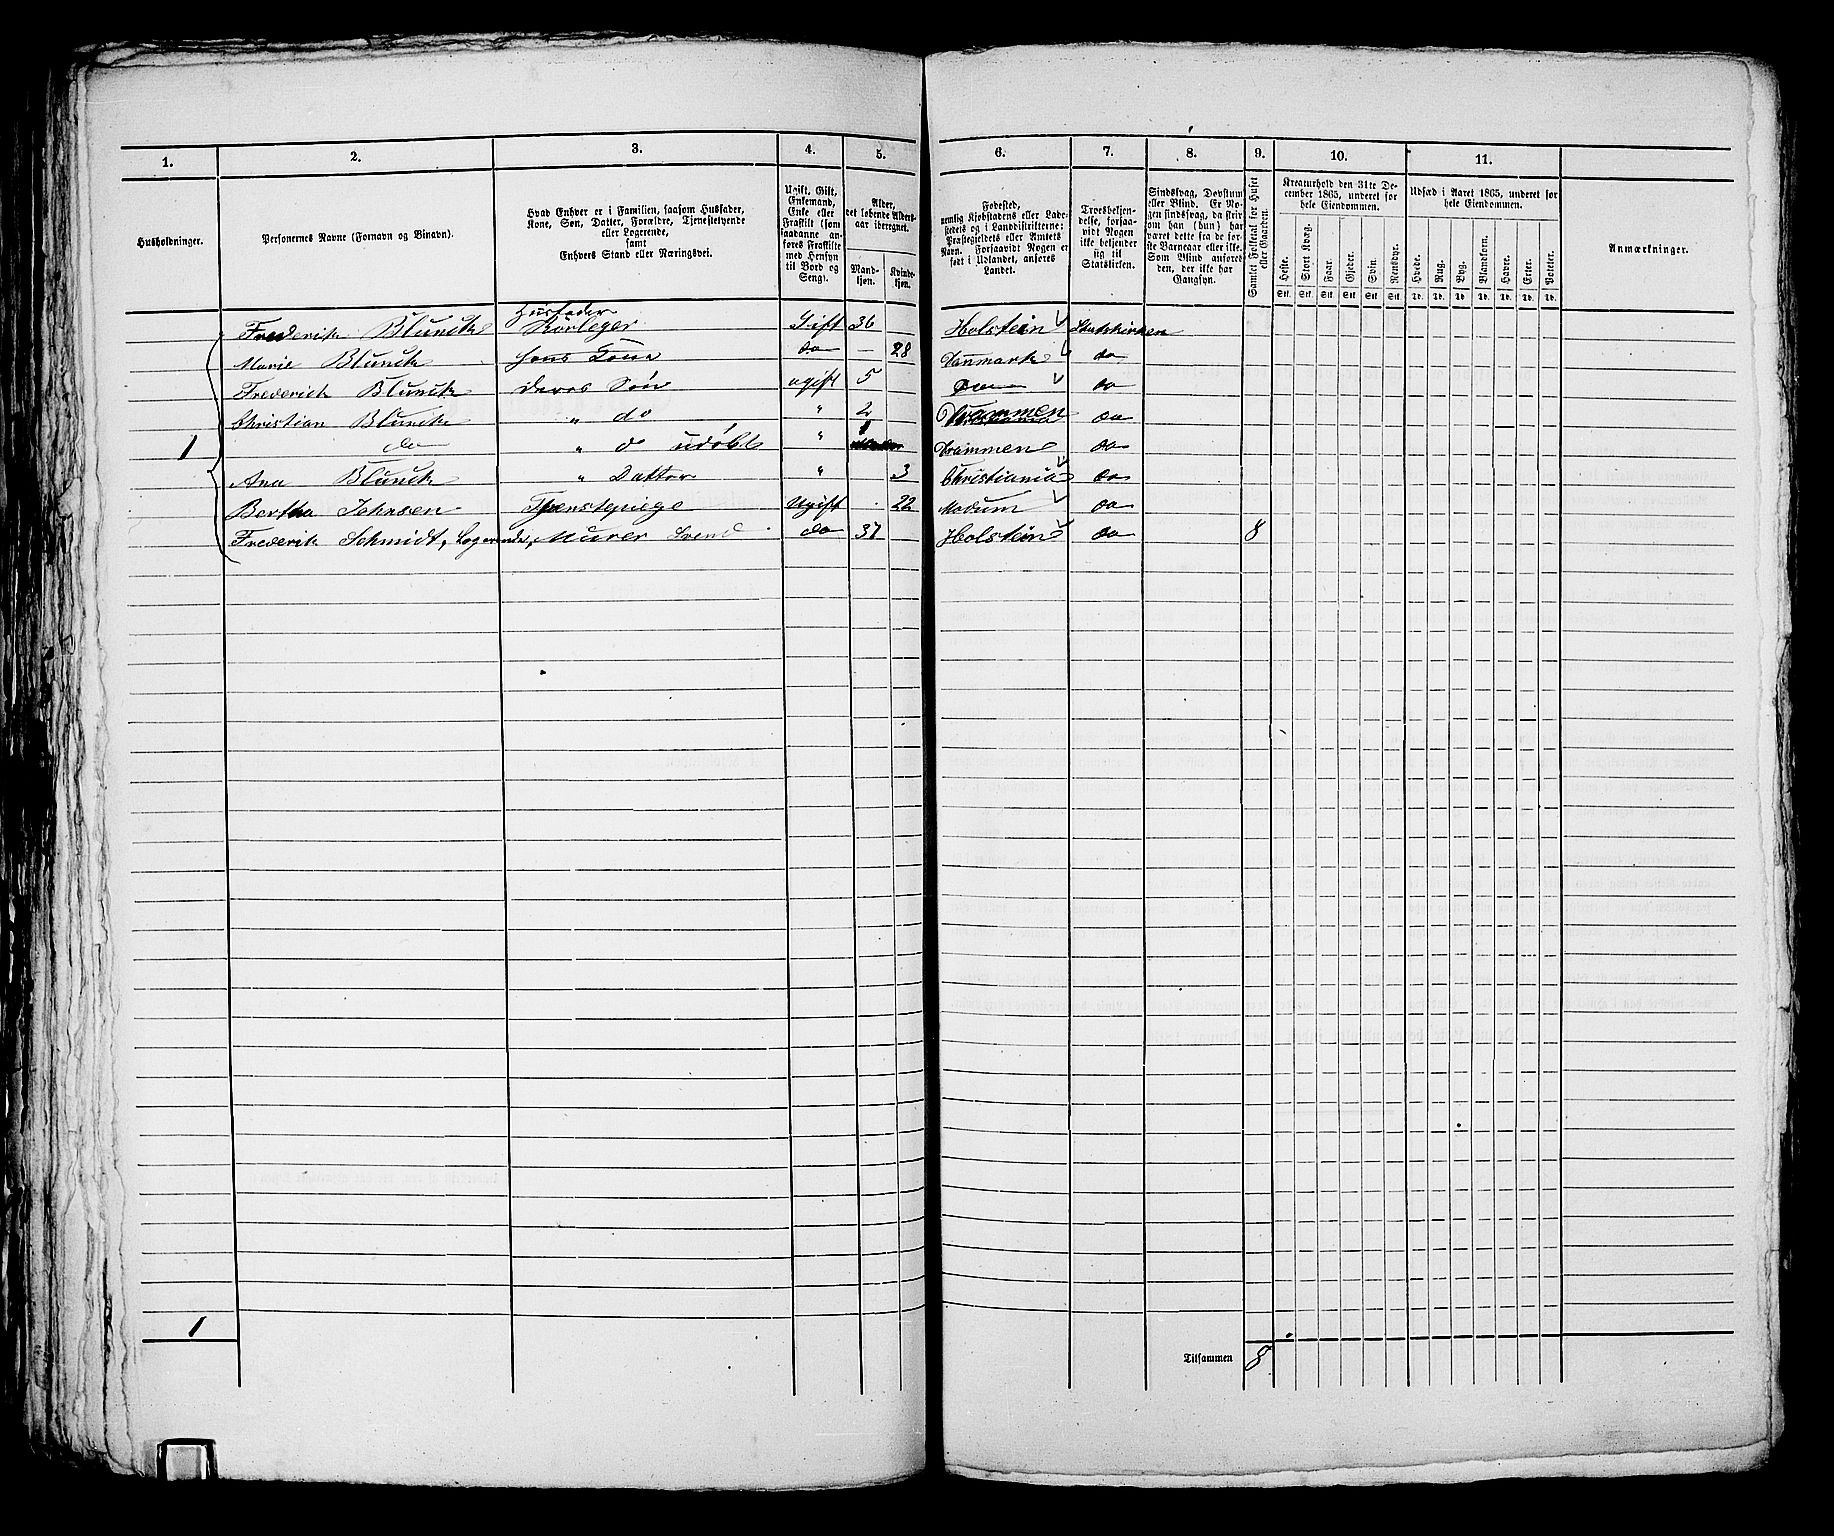 1. 2. 3. 4. 5. 6. 7. 8. 9. 10. 11.
Husholdninger.
Personernes Navne (Fornavn og Binavn).
Hvad Enhver er i Familien, saasom Husfader,
Kone, Søn, Datter, Forældre, Tjenestetyende
eller Logerende,
samt
Enhvers Stand eller Næringsvei.
Ugift, Gift,
Enkemand,
Enke eller
Fraskilt (som
saadanne an-
føres Fraskilte
med Hensyn
til Bord og
Seng).
Alder,
det løbende Alders-
aar iberegnet.
Mand-
kjøn.
Kvinde-
kjøn.
Fødested,
nemlig Kjøbstadens eller Lade-
stedets og i Landdistrikterne:
Præstegjeldets eller Amtets
Navn. Forsaavidt Nogen er
født i Udlandet, anføres
Landet.
Troesbekjen-
delse, forsaa-
vidt Nogen
ikke bekjender
sig til
Statskirken.
Sindssvag, Døvstum
eller Blind. Er No-
gen sindssvag, da skriv
om han (hun) har
været dette fra de før-
ste Barneaar eller ikke.
Som Blind anføres
den, der ikke har
Gangsyn.
Samlet Folketal for Huset
eller Gaarden.
Kreaturhold den 31te De-
cember 1865, underet for
hele Eiendommen.
Heste. Stort Kvæg. Faar. Gjeder. Svin. Rensdyr.
Stk. Stk. Stk. Stk. Stk. Stk.
Udsæd i Aaret 1865, underet for
hele Eiendommen.
Hvede. Rug. Byg. Blandkorn. Havre. Erter. Poteter.
Td. Td. Td. Td. Td. Td. Td.
Anmærkninger.
Husfader
Frederik Blunck Gift 36 Holstein Statskirken
Marie Blunck hans Kone do — 28 Danmark do
Frederik Blunck deres Søn ugift 5 do
Christian Blunck " do " 2 Drammen do
1 do " d udøbt " 1 Drammen do
Ana Blunck " Datter " 3 Christiania do
Bertha Johnsen Tjenstepige Ugift 22 Modum do
Frederik Schmidt, Logerende, Murer Svend do 37 Holstein do 8
1
Tilsammen 8